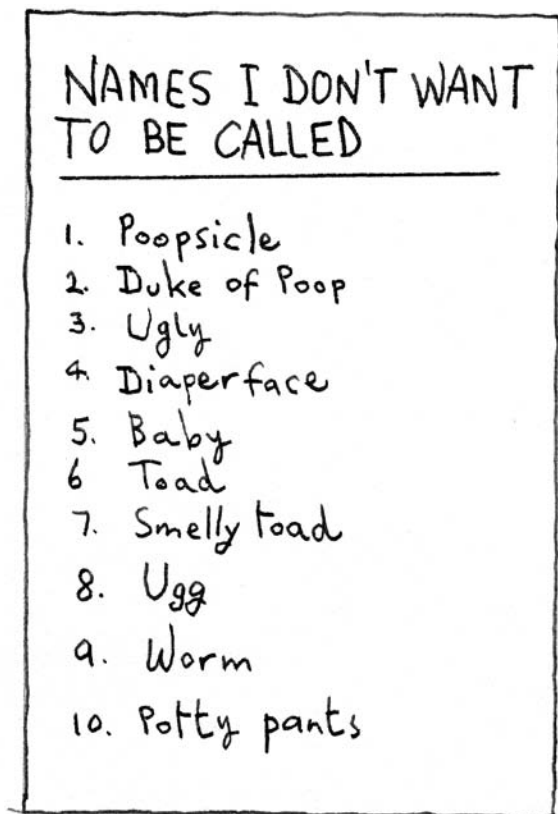 NAMES I DON'T WANT
TO BE CALLED
1. Poopsicle
2. Duke of Poop
3. Ugly
4. Diaperface
5. Baby
6 Toad
7. Smelly toad
8. Ugg
9. Worm
10. Potty pants